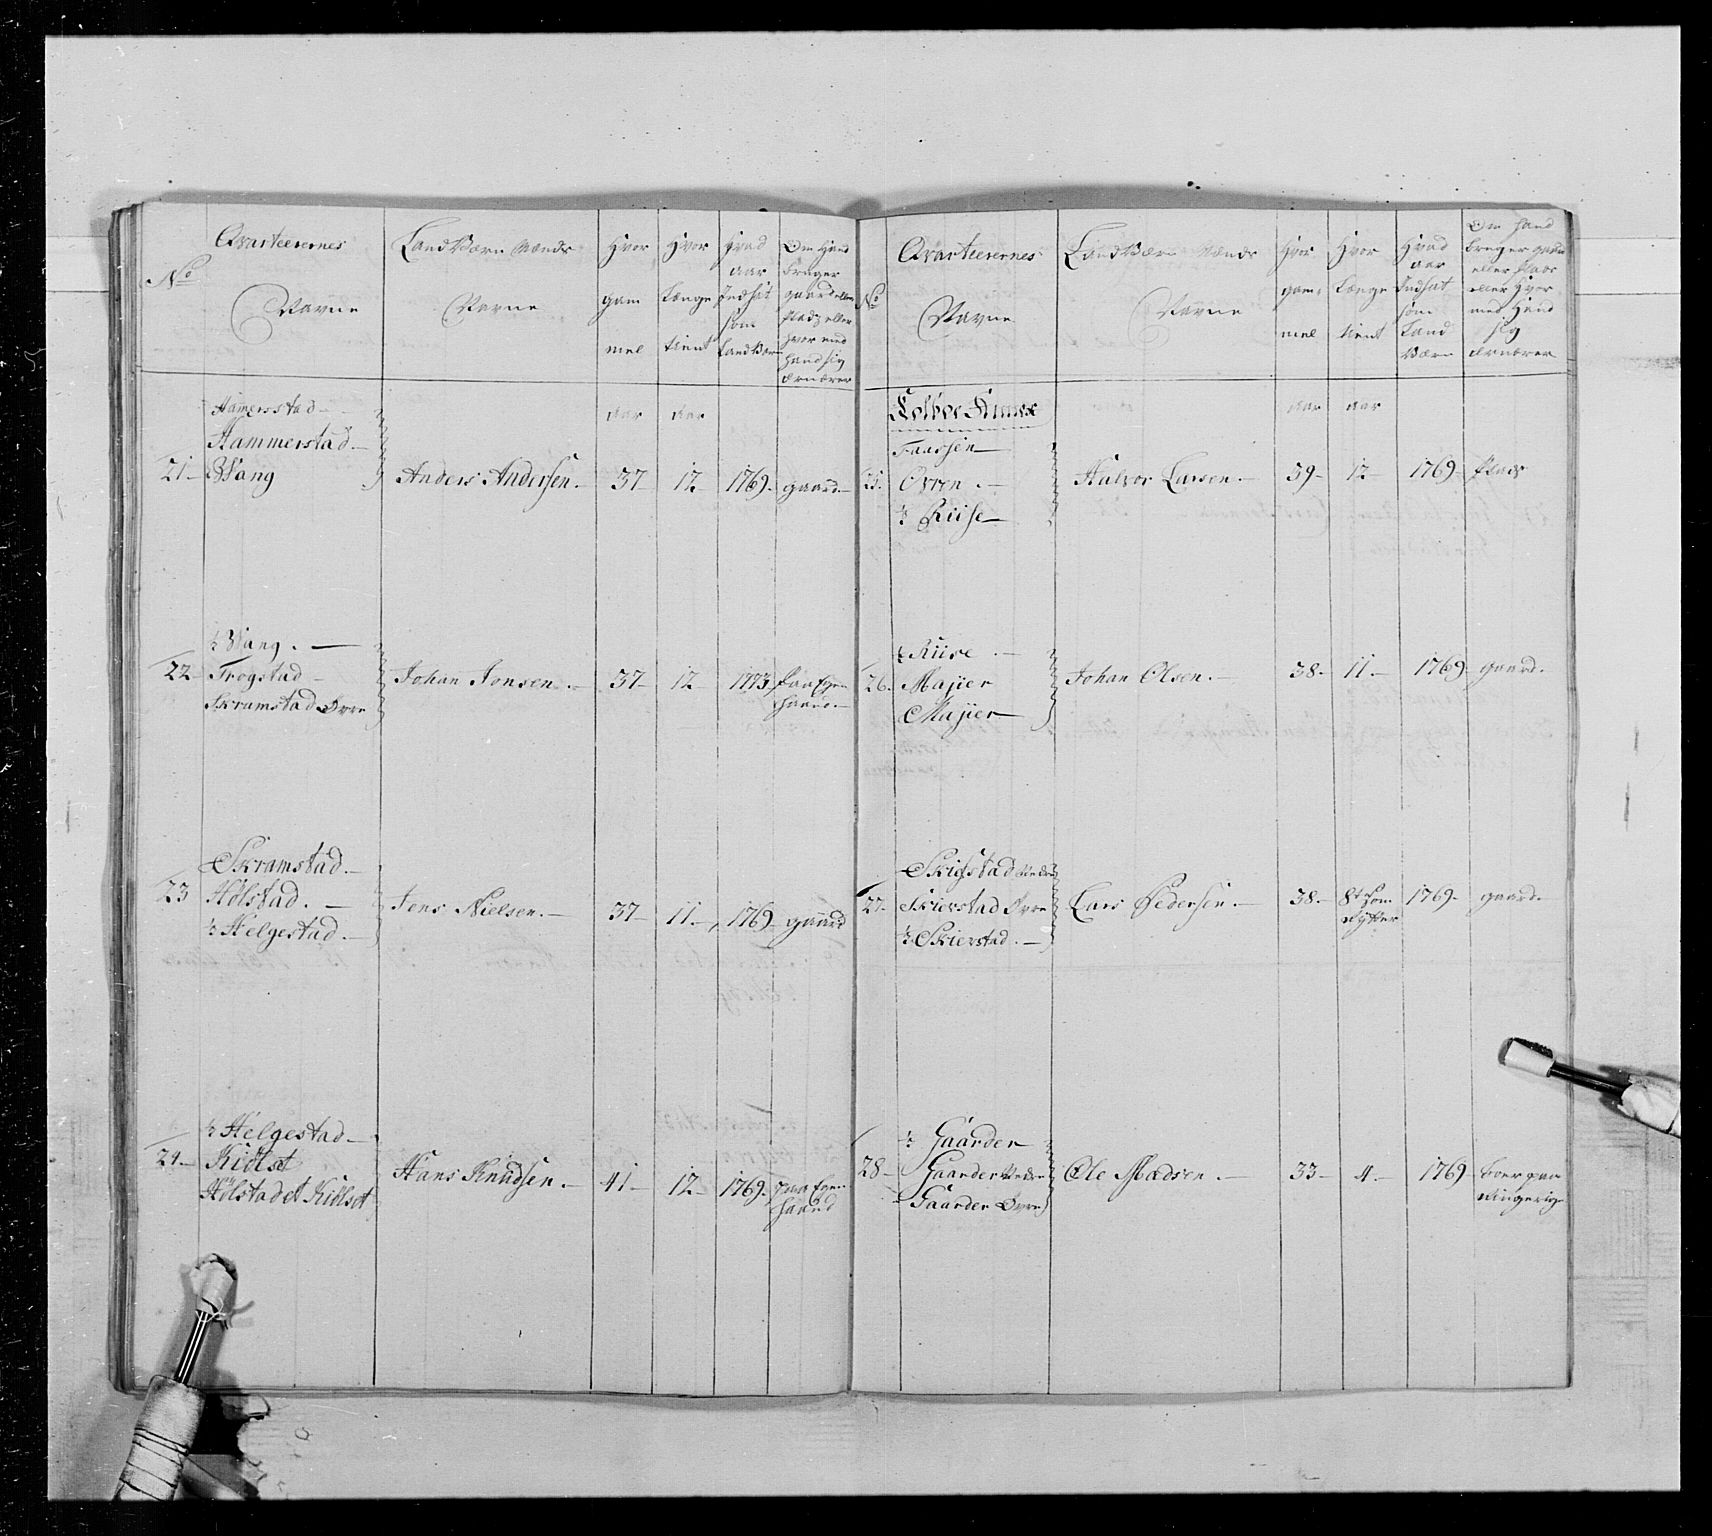 No
Qvarteerernes
Navne
LandVærn Mænds
Navne
Hvor
gam
mel
Hvor
Længe
tient
Hvad
aar
Indsat
som
LandVærn
Om Hand
bruger
gaard eller
Plads eller
Hvor med
Hand sig
Ernærer
aar aar
Hamerstad
Hammerstad
21 Wang Anders Andersen 37 12 1769 gaard
½ Wang
22 Frogstad Johan Jonsen 37 12 1773 Paa Egen
Haand
Skramstad Øvre
Skramstad
23 Hölstad Jens Nielsen 37 11 1769 gaard
½ Helgestad
½ Helgestad
24 Kiölset Hans Knudsen 41 12 1769 Paa Egen
Haand
Hölstad et Kiölset
No
Qvarteerernes
Navne
LandVærn Mænds
Navne
Hvor
gam
mel
Hvor
Længe
tient
Hvad
aar
Indsat
som
Land
Værn
Om Hand
bruger gaard
eller Plads
eller Hvor
med Hand
sig
Ernærer
aar aar
Faassen
25 Ovren Halvor Larsen 39 12 1769 Plads
½ Riise
½ Riise
26 Majier Johan Olsen 38 11 1769 gaard
Majier
Skierstad Nedre
27 Skierstad Øvre Lars Pedersen 38 8t som
Rytter 1769 gaard
½ Skierstad
½ Gaarder
28 Gaarder Nedre Ole Madsen 33 4 1769 boer paa
Ringerige
Gaarder Øvre